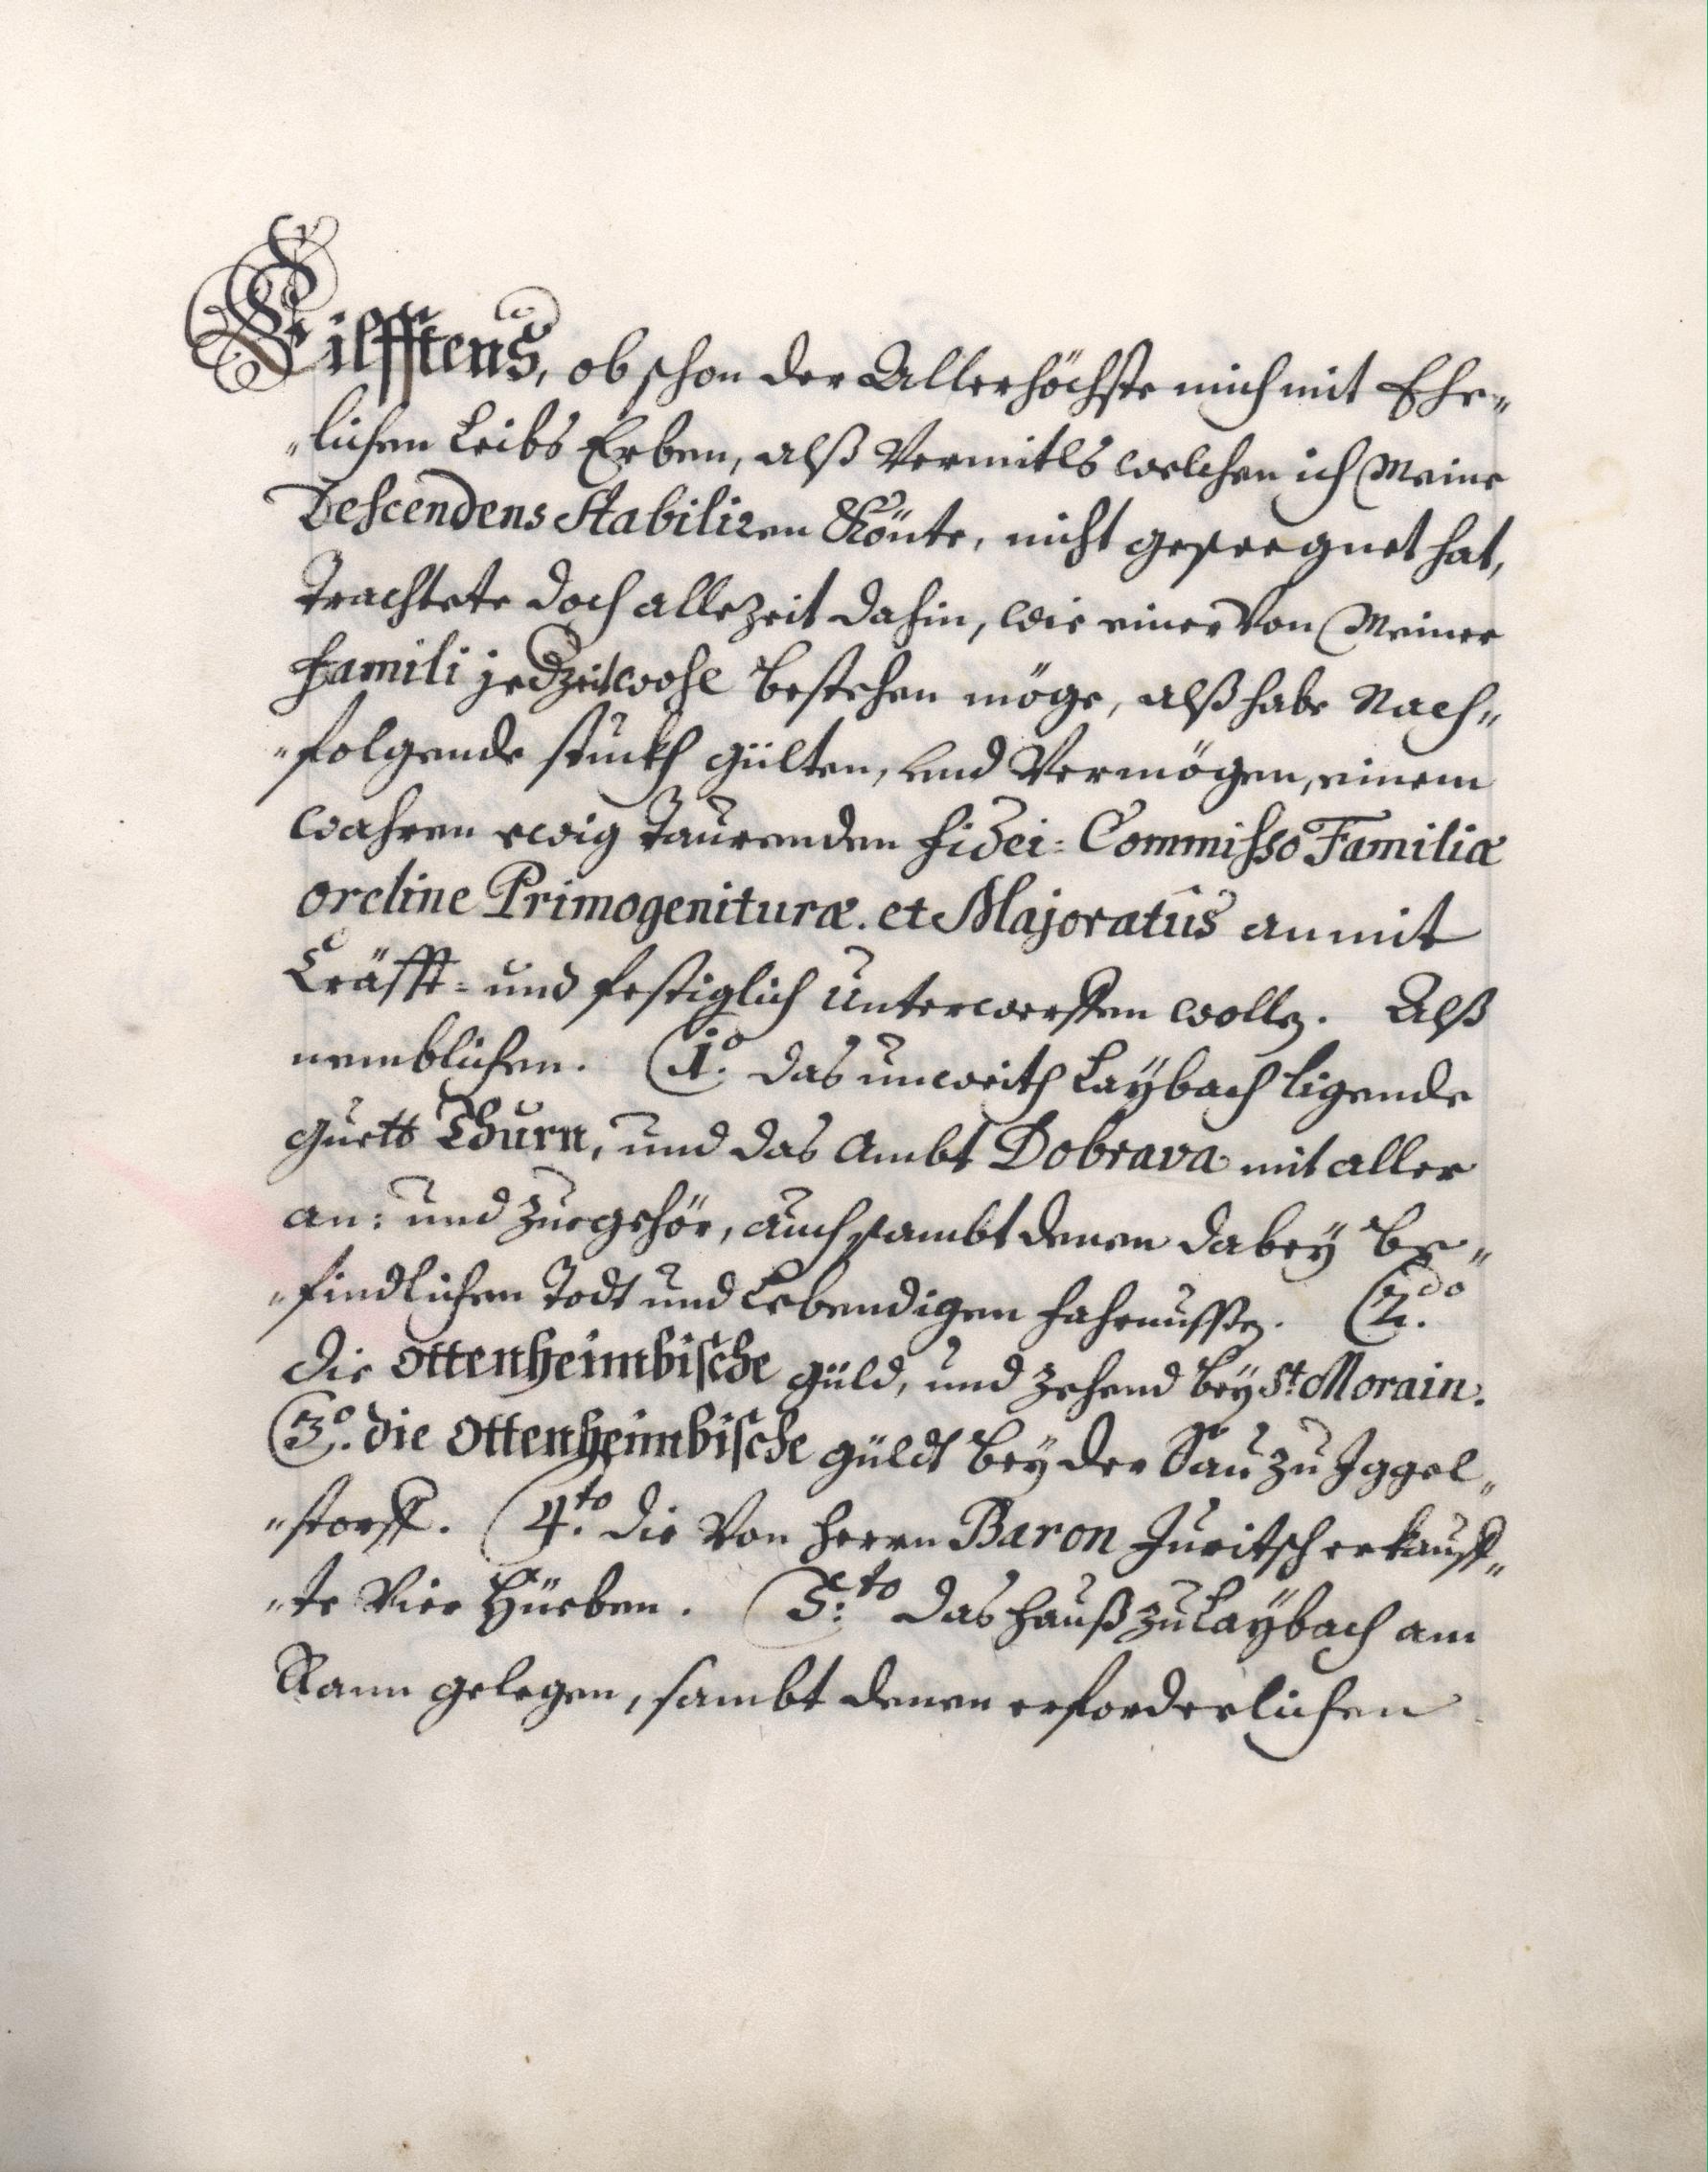 Eilfftens, ob schon der Allerhöchste mich mit Ehe„
„lichen Leibs Erben, alß Vermitls welchen ich Meine
Descendens Stabiliren Könte, nicht geseegnet hat,
Trachtete doch allezeit dahin, wie einer Von Meiner
Famili jedzeit wohl bestehen möge, alß habe Nach„
„folgende stuckh gülten, und Vermögen, einem
wahren ewig Taurenden Fidei=Commisso Familiæ
ordine Primogenituræ. et Majoratûs anmit
Kräfft= und festiglich unterwerffen wollen. Alß
nemblichen. 1º. das unweith Laybach ligende
Guett Thurn, und das Ambt Dobrava mit aller
an: und zuegehör, auch sambt denen dabey be„
„findlichen Todt und Lebendigen Fahrnussen. 2.do
die Ottenheimbische güld, und zehend bey St. Morain.
3º. die Ottenheimbische güldt bey der Sau zu Iggel„
„storff. 4.to die Von Herrn Baron Juritsch erkauff„
„te Vier Hueben. 5:to das Hauß zu Laybach am
Rann gelegen, sambt denen erforderlichen